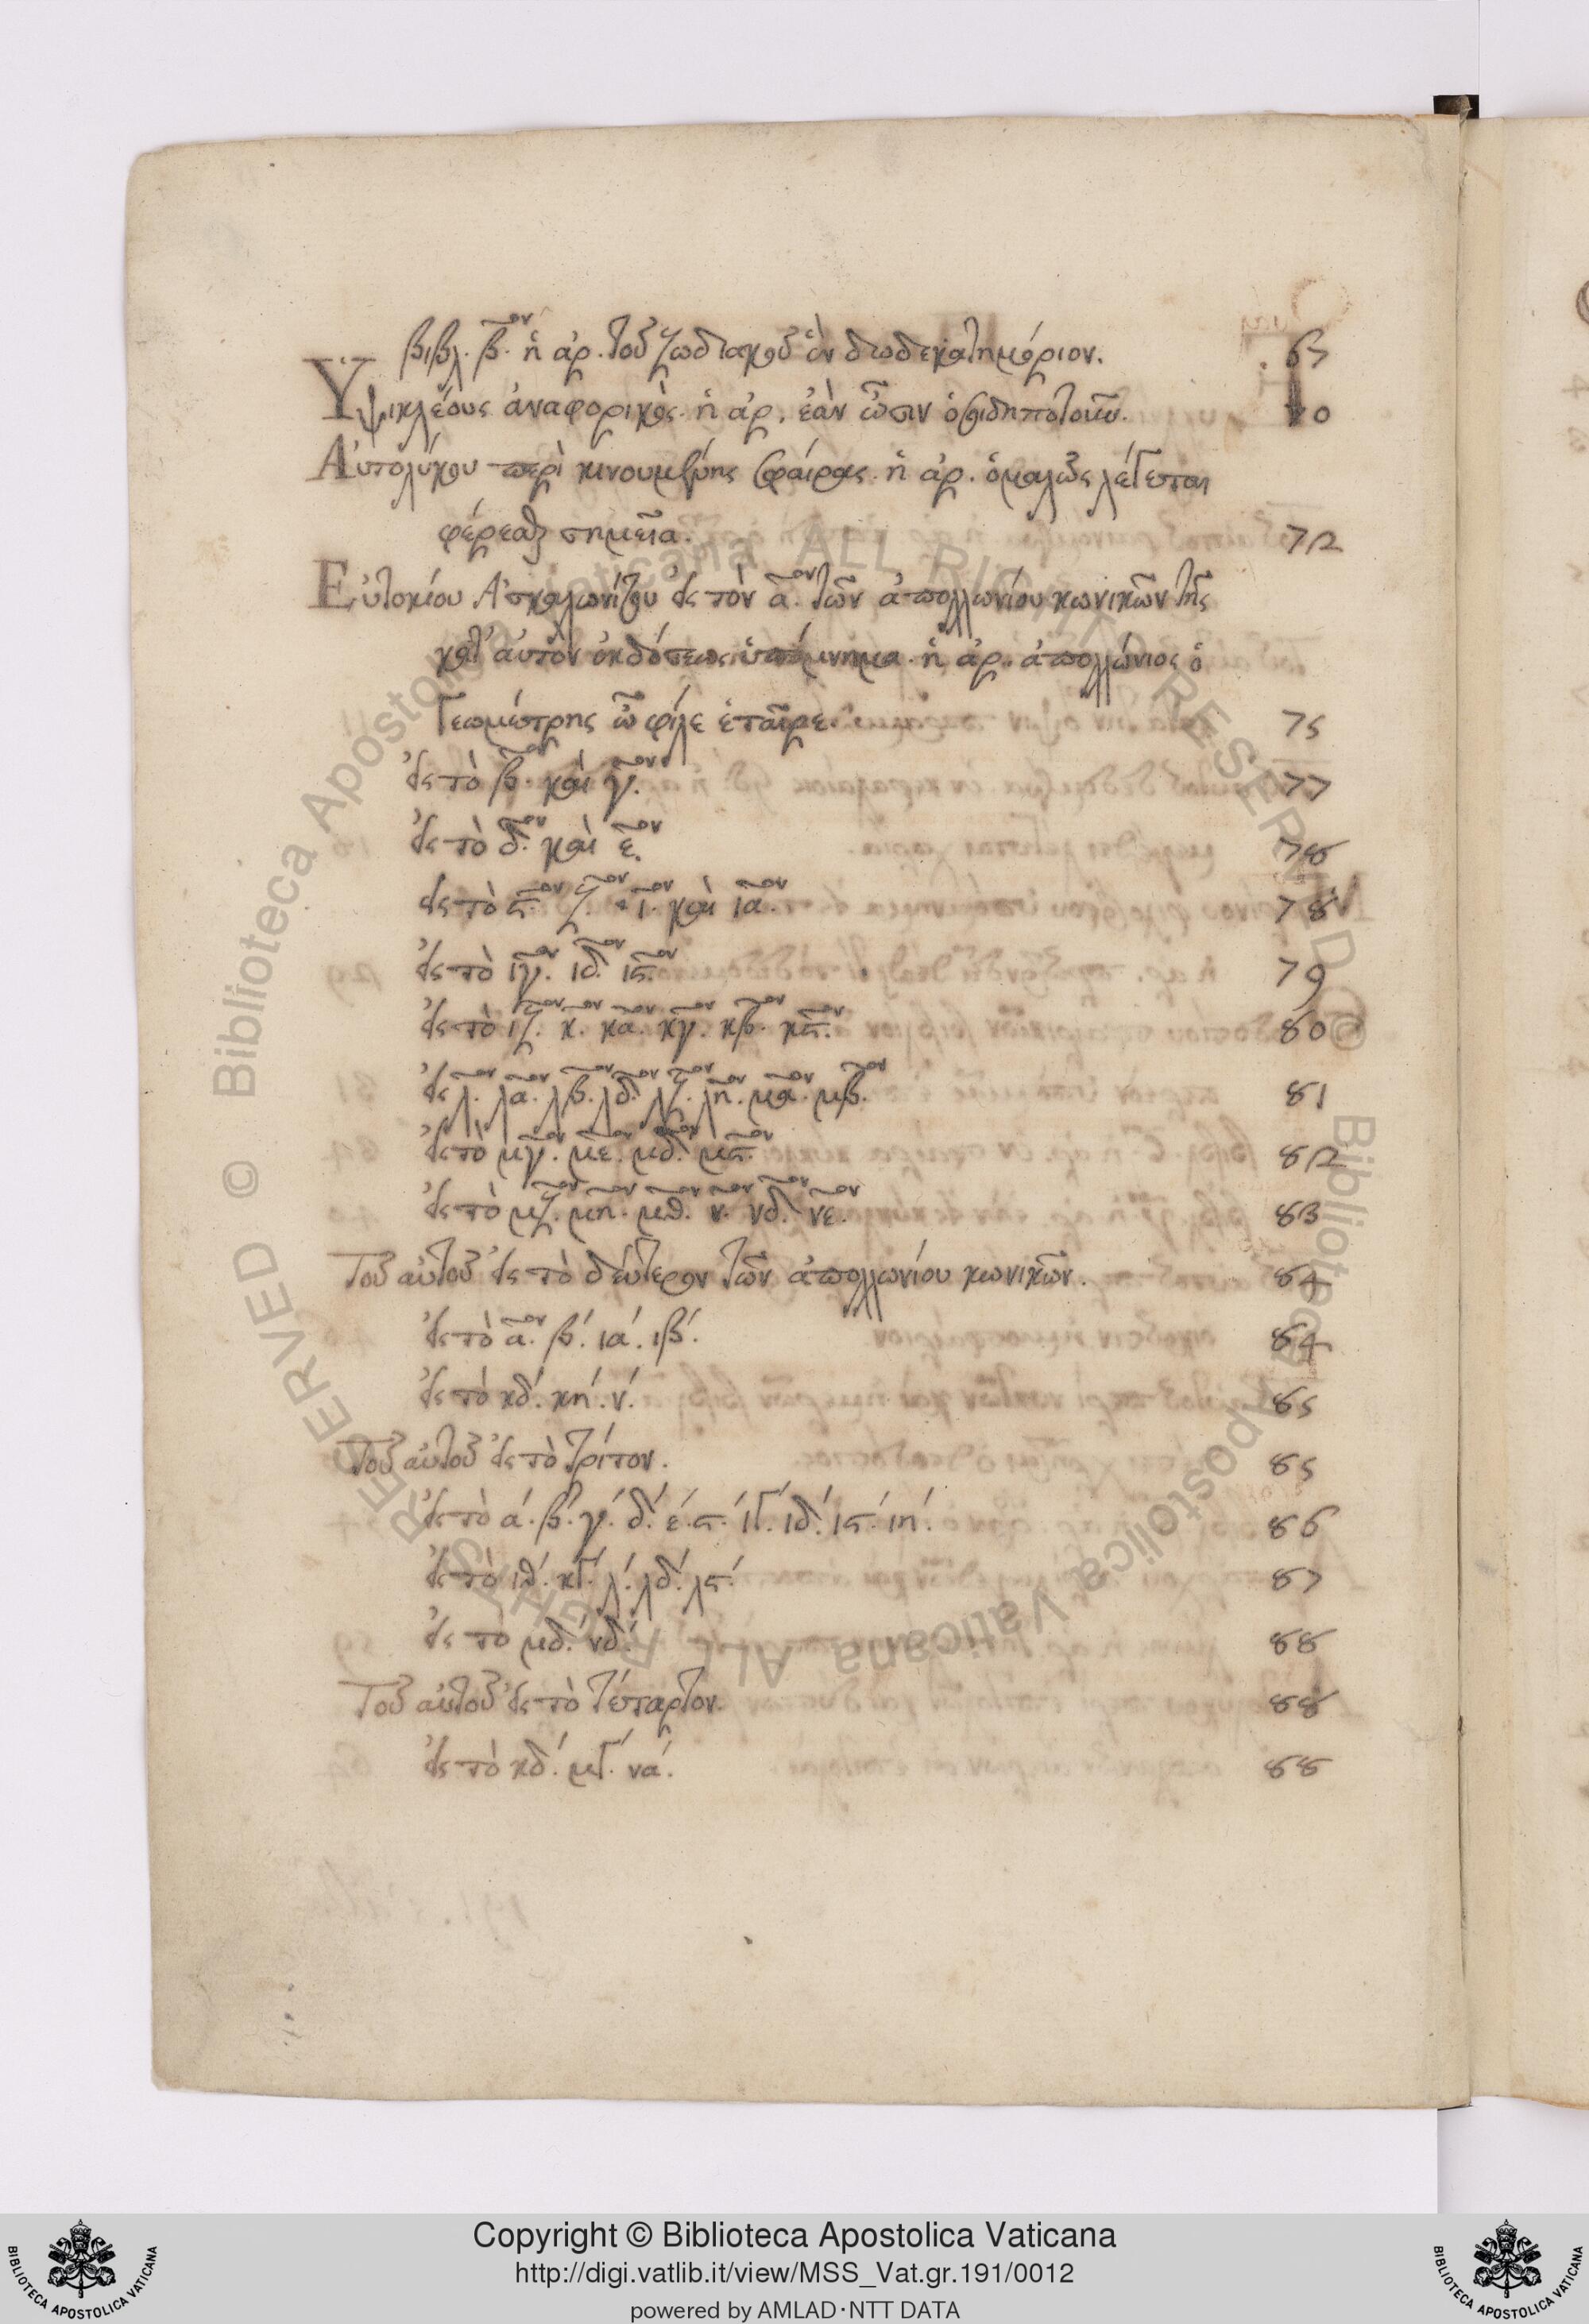 βιβλ. β^ον. ἡ ἀρ. τοῦ ζωδιακοῦ ἓν δωδεκατημόριον. 67
Ὑψικλέους ἀναφορικὸς. ἡ ἀρ. ἐὰν ὦσιν ὁσοιδηποτοιοῦν. 70
Αὐτολύκου περὶ κινουμένης σφαίρας. ἡ ἀρ. ὁμαλῶς λέγεται
φέρεσθαι σημεῖα. 72
Εὐτοκίου Ἀσκαλωνίτου εἰς τὸν α^ον. τῶν ἀπολλωνίου κωνικῶν τῆς
κατ' αὐτὸν ἐκδόσεως ὑπόμνημα. ἡ ἀρ. ἀπολλώνιος ὁ
γεωμέτρης ὦ φίλε ἑταῖρε. 75
εἰς τὸ β^ον. καὶ γ^ον. 77
εἰς τὸ δ^ον. καὶ ε^ον. 78
εἰς τὸ ϛ^ον. ζ^ον. ι^ον. καὶ ια^ον. 78
εἰς τὸ ιγ^ον. ιδ^ον. ιϛ^ον. 79
εἰς τὸ ιζ^ον. κ^ον. κα^ον. κγ^ον. κβ^ον. κϛ^ον. 80
εἰς λ^ον. λα^ον. λβ^ον. λδ^ον. λζ^ον. λη^ον. μα^ον. μβ^ον. 81
εἰς τὸ μγ^ον. με^ον. μδ^ον. μϛ^ον. 82
εἰς τὸ μζ^ον. μη^ον. μθ^ον. ν^ον. νδ^ον. νε^ον. 83
Τοῦ αὐτοῦ εἰς τὸ δεύτερον τῶν ἀπολλωνίου κωνικῶν. 84
εἰς τὸ α^ον. β´. ια´. ιβ´. 84
εἰς τὸ κδ´. κη´. ν´. 85
Τοῦ αὐτοῦ εἰς τὸ τρίτον. 85
εἰς τὸ α´. β´. γ´. δ´. ε´. ϛ´. ιγ´. ιδ´. ιϛ´. ιη´. 86
εἰς τὸ ιθ´. κγ´. λ´. λδ´. λϛ´. 87
εἰς τὸ μδ´. νδ´. 88
Τοῦ αὐτοῦ εἰς τὸ τέταρτον. 88
εἰς τὸ κδ´. μγ´. να´. 88
Copyright © Biblioteca Apostolica Vaticana
http://digi.vatlib.it/view/MSS_Vat.gr.191/0012
powered by AMLAD·NTT DATA
BIBLIOTECA APOSTOLICA VATICANA
BIBLIOTECA APOSTOLICA VATICANA
© Biblioteca Apostolica Vaticana ALL RIGHTS RESERVED
© Biblioteca Apostolica Vaticana ALL RIGHTS RESERVED